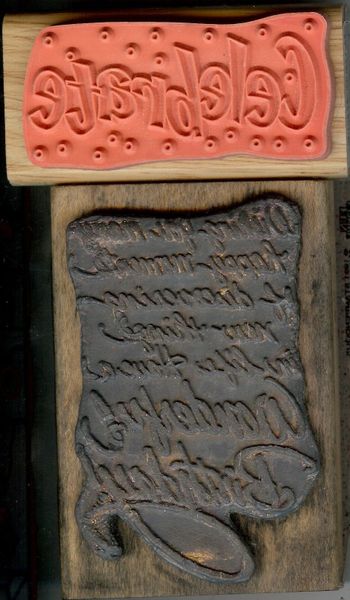 Celebrate
Wishing you many
happy memories
& discovering
new things
in life. Have a
Wonderful
Birthday